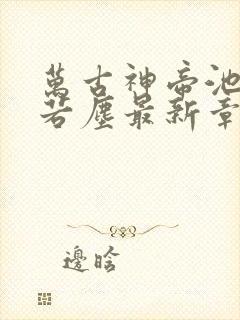 萬古神帝池
若塵最新章
邊晗